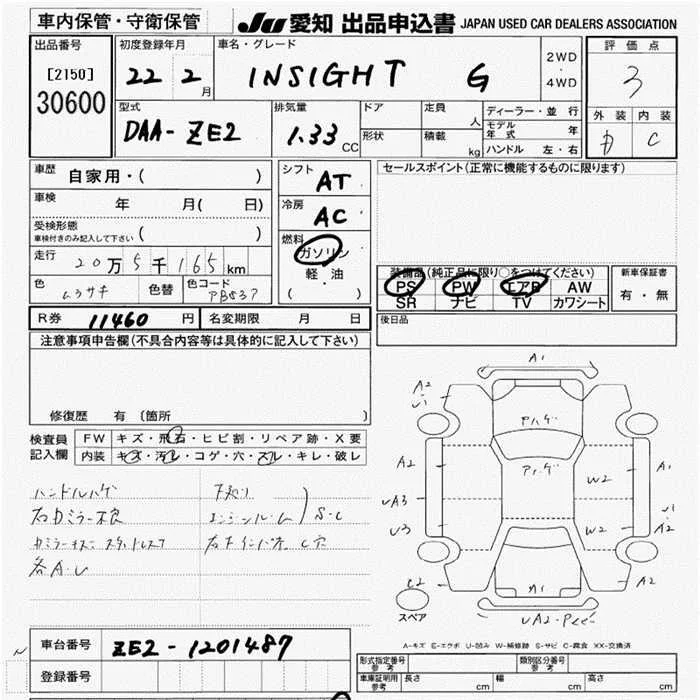 車内保管・守衛保管 JU 愛知 出品申込書 JAPAN USED CAR DEALERS ASSOCIATION
出品番号
[2150]
30600
初度登録年月
22 2 月
車名・グレード
INSIGHT G
2WD
4WD
評価点
3
外装 内装
C
型式
DAA-ZE2
排気量
1.33 CC
ドア
形状
定員 人
積載 kg
ディーラー・並行
モデル年式 年
ハンドル 左・右
車歴 自家用・( )
車検 年 月( 日)
受検形態
車検付きのみ記入して下さい ( )
走行 20万5千165km
色 ムラサキ 色替 色コード PB83P
R券 11460 円 名変期限 月 日
シフト AT
冷房 AC
燃料
ガソリン
軽・油
( ・ )
セールスポイント(正常に機能するものに限ります)
装備品(純正品に限り○をつけてください)
PS PW エアB AW
SR ナビ TV カワシート
新車保証書
有・無
後日品
注意事項申告欄(不具合内容等は具体的に記入して下さい)
修復歴 有 〔箇所 〕
検査員記入欄
FW キズ・飛石・ヒビ割・リペア跡・X要
内装 キズ・汚レ・コゲ・穴・スレ・キレ・破レ
ハンドルハゲ 下廻り
エンジンルーム S・C
各A・U
A1
A2
A2 A1
UA3 W2
U3 W2 A2
A1 A2
スペア
A-キズ E-エクボ U-凹み W-補修跡 S-サビ C-腐食 XX-交換済
車台番号 ZE2-1201487
登録番号
形式指定番号 参考
類別区分番号 参考
車庫証明用 参考 長さ cm 幅 cm 高さ cm